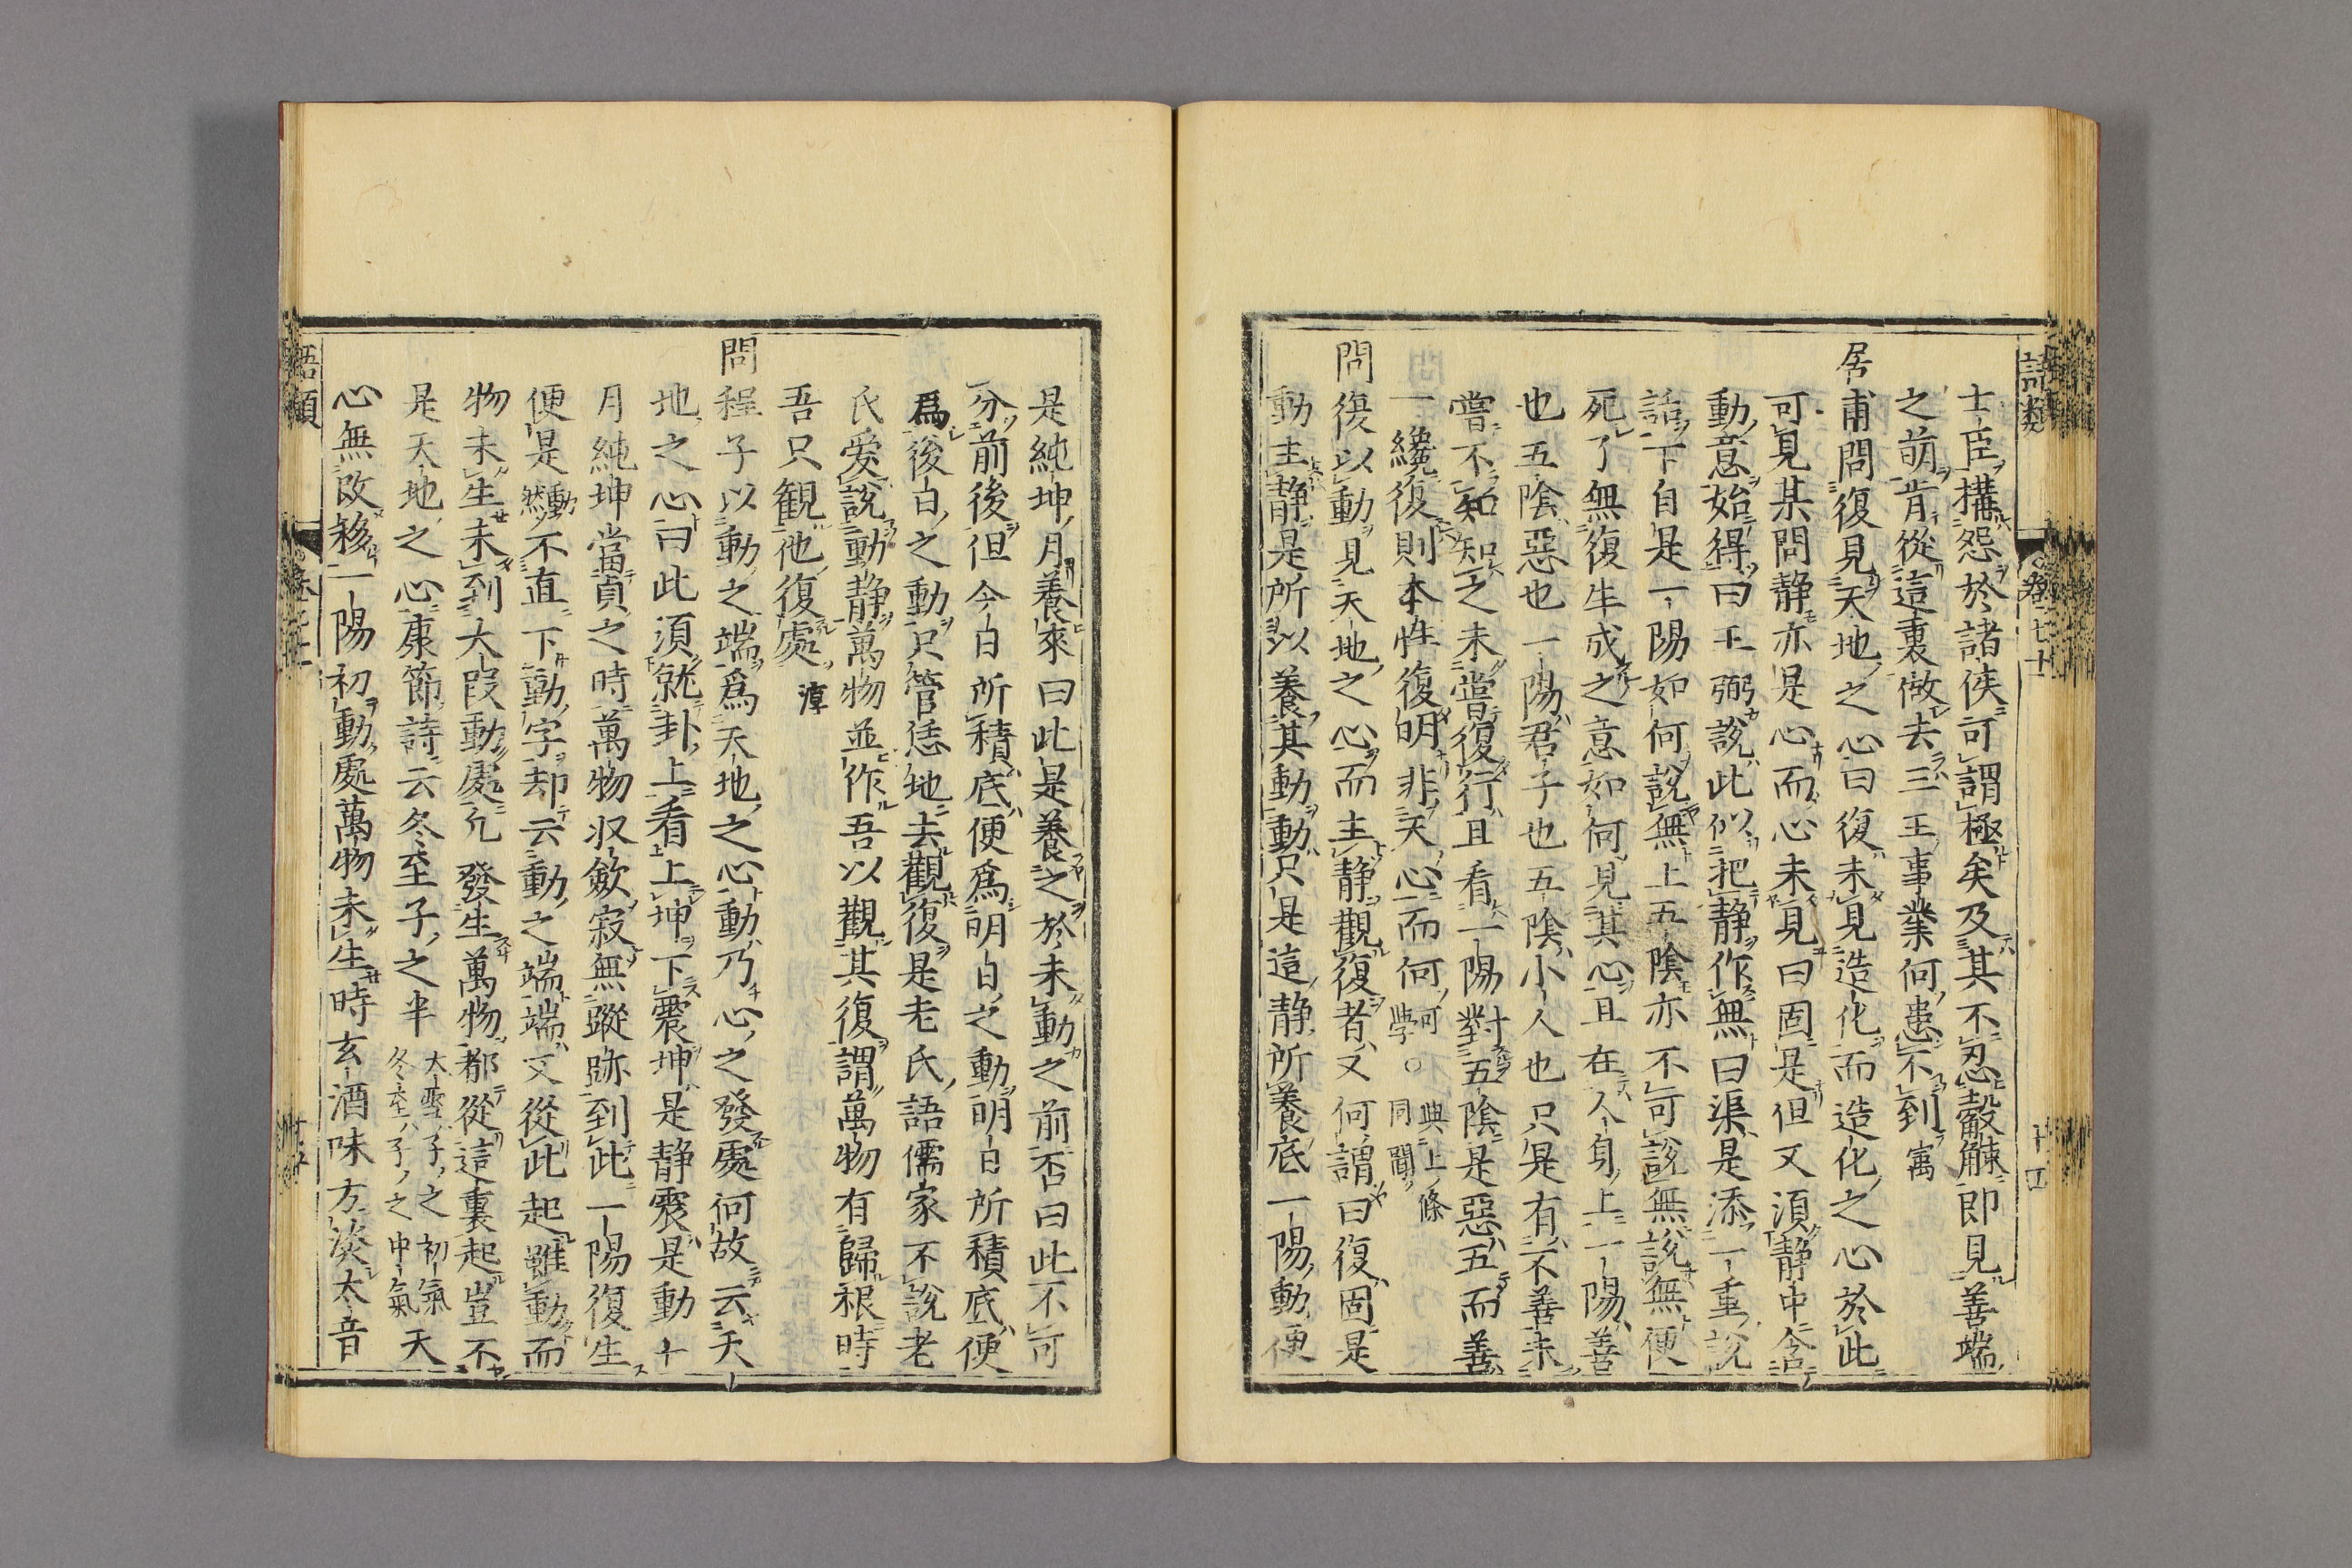 語類 卷七十一 十四
士臣搆怨於諸侯可謂極矣及其不忍觳觫即見善端
之萌肯從這裏做去三王事業何患不到㝢
居甫問復見天地之心曰復未見造化而造化之心於此
可見某問静亦是心而心未見曰固是但又須静中含
動意始得曰王弼說此似把静作無曰渠是添一重說
話下自是一陽如何說無上五陰亦不可說無說無便
死了無復生成之意如何見其心且在人身上一陽善
也五陰惡也一陽君子也五陰小人也只是有不善未
嘗不知知之未嘗復行且看一陽對五陰是惡五而善
一纔復則本性復明非天心而何可學○與上條同聞
問復以動見天地之心而主静觀復者又何謂曰復固是
動主静是所以養其動動只是這静所養底一陽動便
是純坤月養來曰此是養之於未動之前否曰此不可
分前後但今日所積底便爲明日之動明日所積底便
爲後日之動只管恁地去觀復是老氏語儒家不說老
氏爱說動静萬物並作吾以觀其復謂萬物有歸根時
吾只観他復處淳
問程子以動之端爲天地之心動乃心之發處何故云天
地之心曰此須就卦上看上坤下震坤是静震是動十
月純坤當貞之時萬物収斂寂無蹤跡到此一陽復生
便是動然不直下動字却云動之端端又從此起雖動而
物未生未到大段動處凢發生萬物都從這裏起豈不
是天地之心康節詩云冬至子之半大雪子之初氣冬至子之中氣天
心無改移一陽初動處萬物未生時玄酒味方淡太音
語類 卷七十一